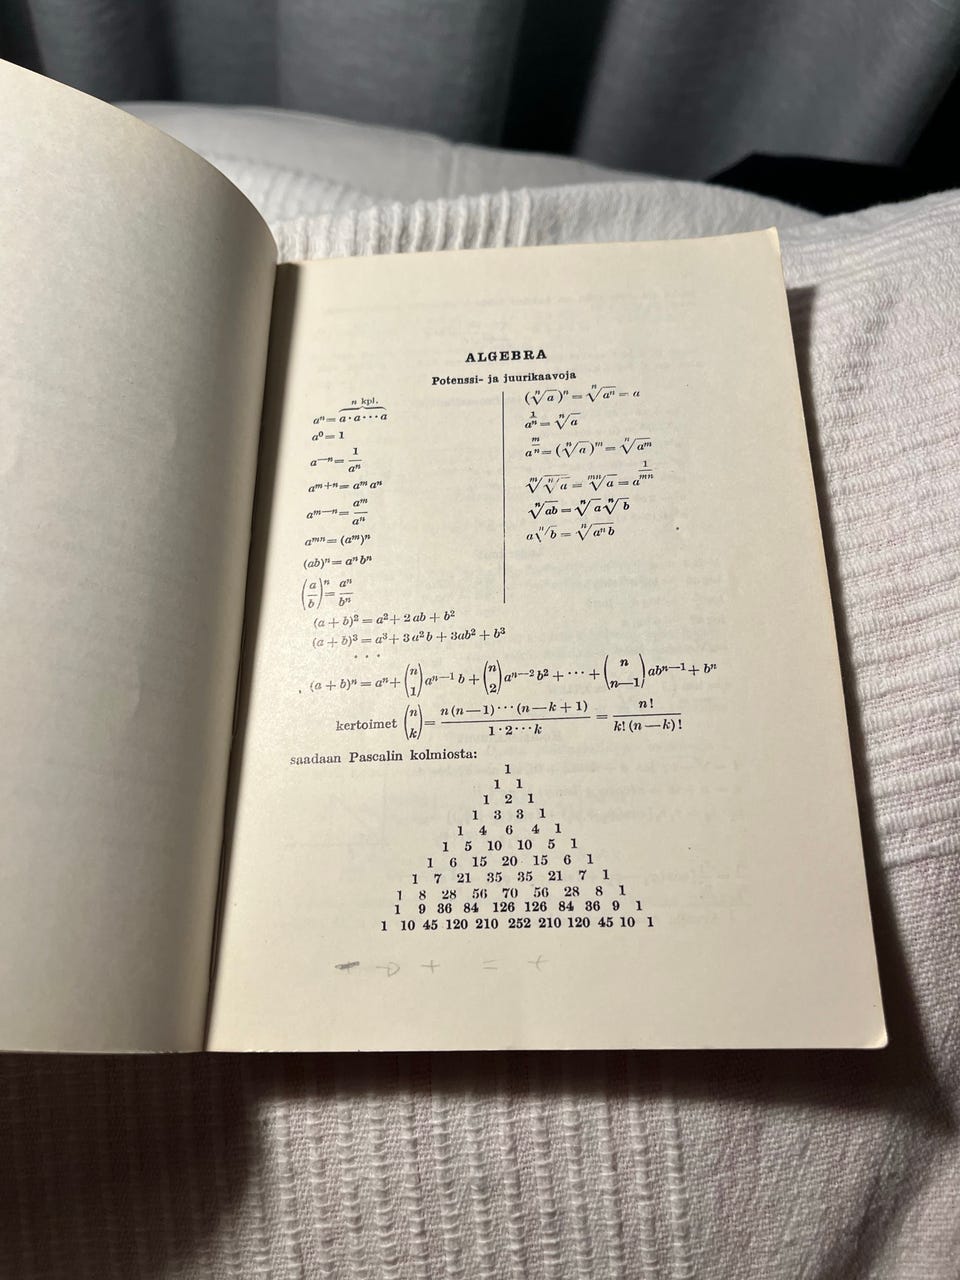 ALGEBRA
Potenssi- ja juurikaavoja
n kpl.
aⁿ = a · a ··· a
a⁰ = 1
a⁻ⁿ = 1/aⁿ
aᵐ⁺ⁿ = aᵐ aⁿ
aᵐ⁻ⁿ = aᵐ/aⁿ
aᵐⁿ = (aᵐ)ⁿ
(ab)ⁿ = aⁿbⁿ
(a/b)ⁿ = aⁿ/bⁿ
(ⁿ√a)ⁿ = ⁿ√aⁿ = a
a^(1/n) = ⁿ√a
a^(m/n) = (ⁿ√a)ᵐ = ⁿ√aᵐ
ᵐ√ⁿ√a = ᵐⁿ√a = a^(1/mn)
ⁿ√ab = ⁿ√a ⁿ√b
a ⁿ√b = ⁿ√aⁿb
(a + b)² = a² + 2 ab + b²
(a + b)³ = a³ + 3 a²b + 3ab² + b³
. . .
(a + b)ⁿ = aⁿ + (n 1) aⁿ⁻¹ b + (n 2) aⁿ⁻² b² + ··· + (n n—1) abⁿ⁻¹ + bⁿ
kertoimet (n k) = n (n — 1) ··· (n — k + 1) / 1 · 2 ··· k = n ! / k! (n — k) !
saadaan Pascalin kolmiosta:
1
1 1
1 2 1
1 3 3 1
1 4 6 4 1
1 5 10 10 5 1
1 6 15 20 15 6 1
1 7 21 35 35 21 7 1
1 8 28 56 70 56 28 8 1
1 9 36 84 126 126 84 36 9 1
1 10 45 120 210 252 210 120 45 10 1
+ = +